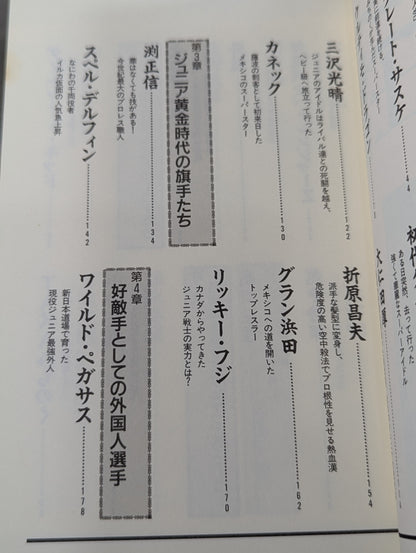 三沢光晴
ジュニアのアイドルはライバル達との死闘を越え、
ヘビー級へ旅立って行った
122
カネック
メキシコのスーパースター
130
第3章
ジュニア黄金時代の旗手たち
渕正信
華はなくても技がある！
今世紀最大のプロレス職人
134
スペル・デルフィン
なにわの千両役者
イルカ仮面の人気急上昇
142
折原昌夫
派手な髪型に変身し、
危険度の高い空中殺法でプロ根性を見せる熱血漢
154
グラン浜田
メキシコへの道を開いた
トップレスラー
162
リッキー・フジ
カナダからやってきた
ジュニア戦士の実力とは？
170
第4章
好敵手としての外国人選手
ワイルド・ペガサス
新日本道場で育った
現役ジュニア最強外人
178